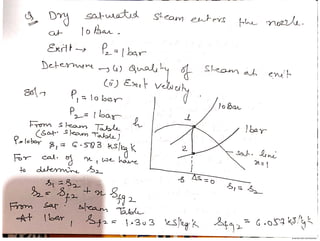 Q Dry saturated steam enters the nozzle
at 10 Bar.
Exit → P₂ = 1 bar
Determine → (i) Quality of steam at exit
(ii) Exit velocity
Solⁿ: P₁ = 10 bar
P₂ = 1 bar
From steam Table
(Sat steam Table)
P=10bar s₁ = 6.583 kJ/kg k
For cal. of x, we have
to determine s₂
s₁ = s₂
s₂ = sf₂ + x sfg₂
From sat steam Table
At 1 bar, sf₂ = 1.303 kJ/kg k sfg₂ = 6.057 kJ/kg k
h
10 Bar
1
1 bar
2
sat. line
x=1
s Δs=0 s₁ = s₂